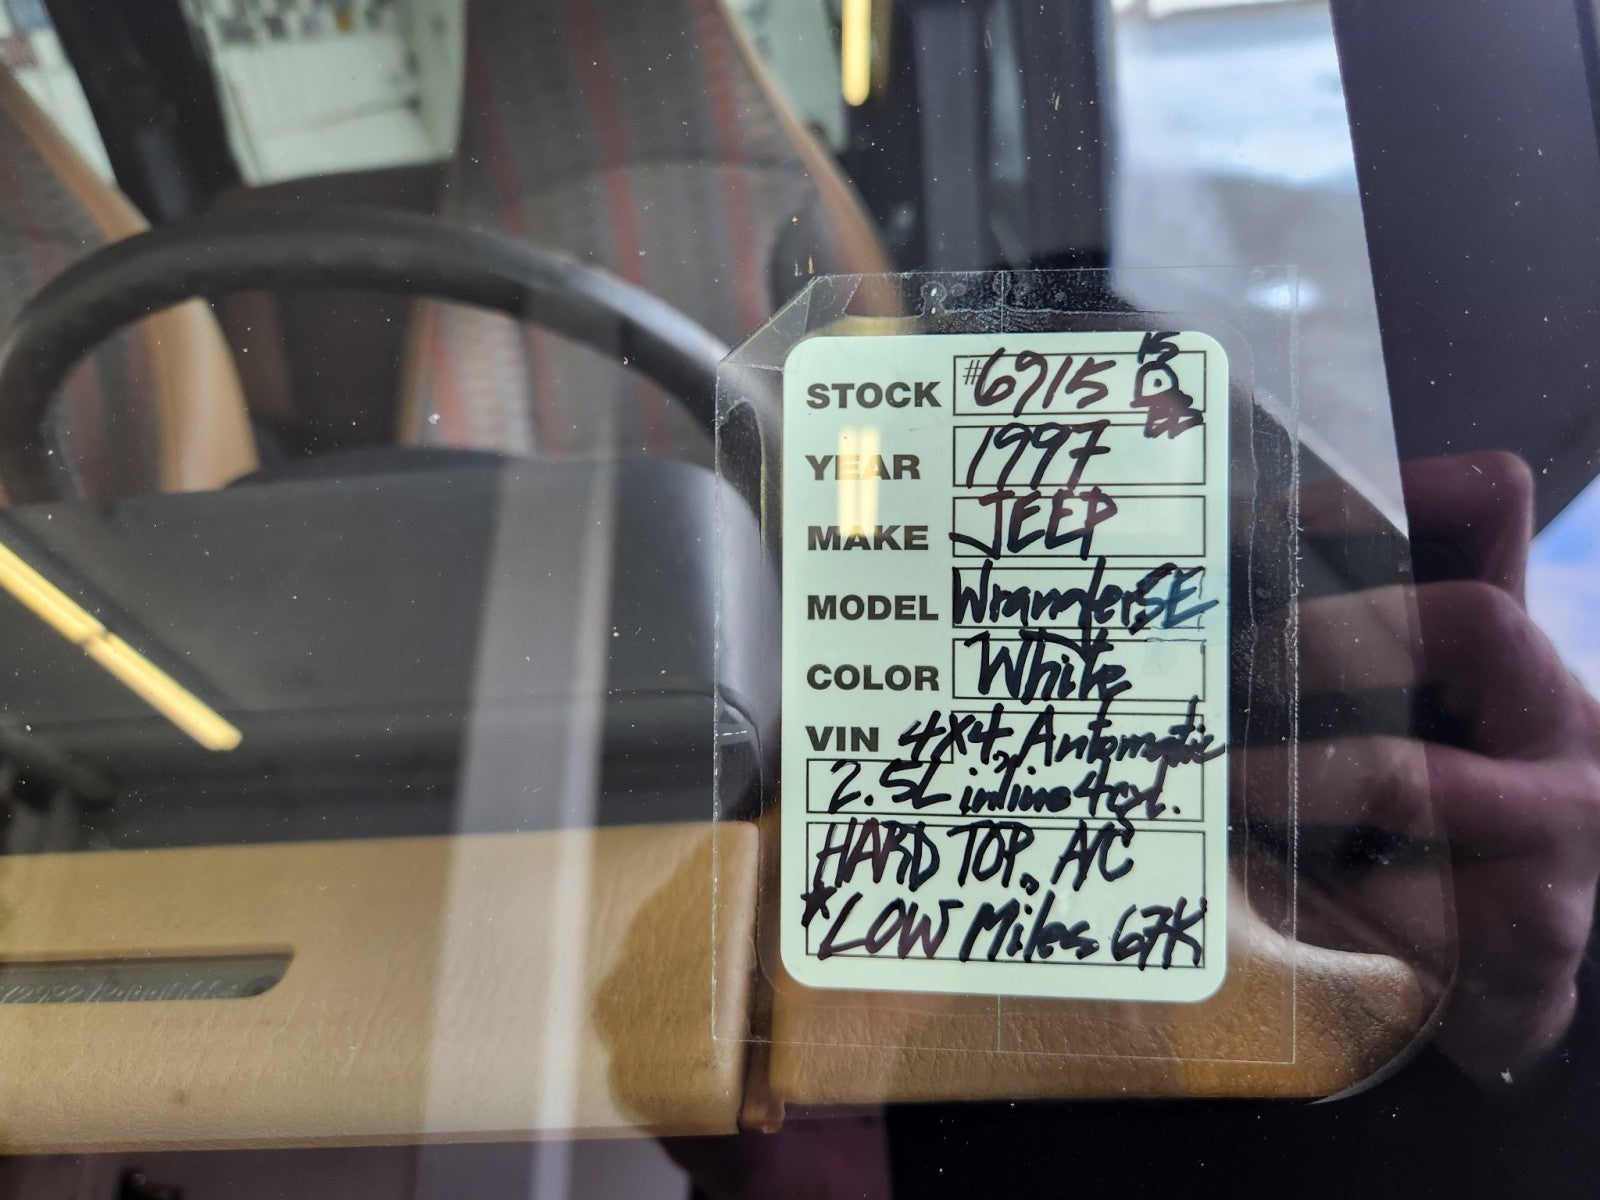 STOCK #6915
YEAR 1997
MAKE JEEP
MODEL Wrangler SE
COLOR White
VIN 4X4, Automatic
2.5L inline 4cyl.
HARD TOP, A/C
*LOW Miles 67K